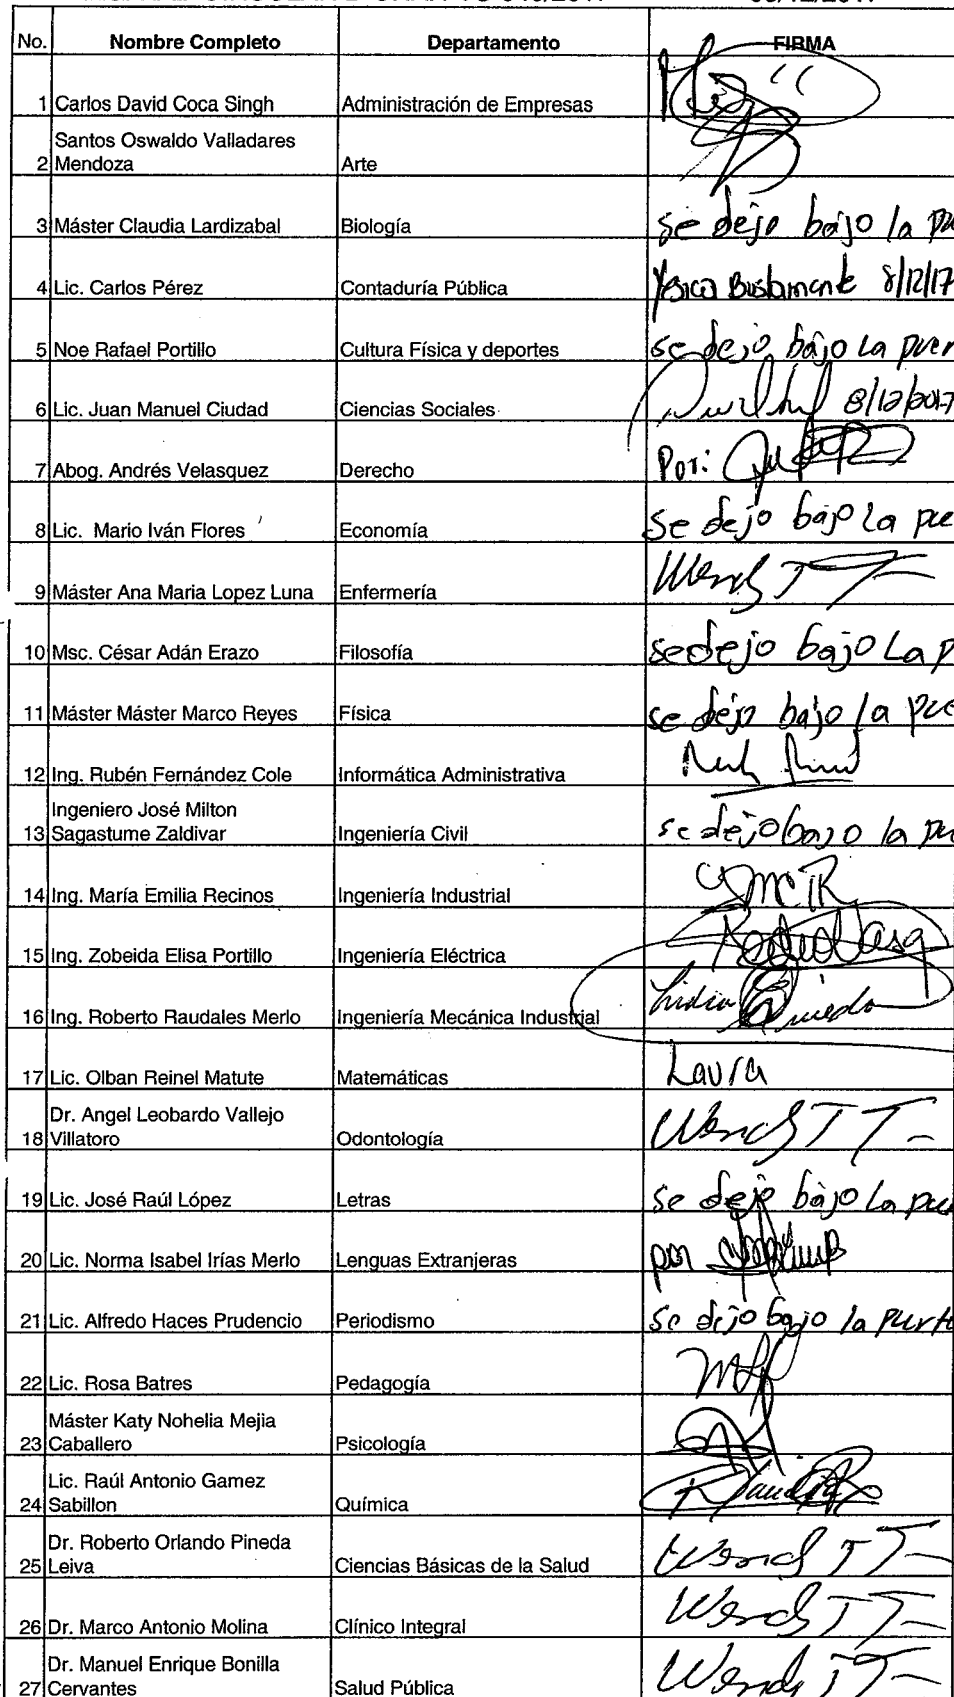 No. Nombre Completo Departamento FIRMA
1 Carlos David Coca Singh Administración de Empresas
Santos Oswaldo Valladares
2 Mendoza Arte
3 Máster Claudia Lardizabal Biología se dejo bajo la pu
4 Lic. Carlos Pérez Contaduría Pública Yesica Bustamente 8/12/17
5 Noe Rafael Portillo Cultura Física y deportes se dejo bajo La puer
6 Lic. Juan Manuel Ciudad Ciencias Sociales 8/12/2017
7 Abog. Andrés Velasquez Derecho Por:
8 Lic. Mario Iván Flores Economía se dejo bajo La pue
9 Máster Ana Maria Lopez Luna Enfermería Wendy TT
10 Msc. César Adán Erazo Filosofía se dejo bajo La p
11 Máster Máster Marco Reyes Física se dejo bajo la pue
12 Ing. Rubén Fernández Cole Informática Administrativa
Ingeniero José Milton
13 Sagastume Zaldivar Ingeniería Civil se dejo bajo la pu
14 Ing. María Emilia Recinos Ingeniería Industrial
15 Ing. Zobeida Elisa Portillo Ingeniería Eléctrica
16 Ing. Roberto Raudales Merlo Ingeniería Mecánica Industrial
17 Lic. Olban Reinel Matute Matemáticas Laura
Dr. Angel Leobardo Vallejo
18 Villatoro Odontología Wendy TT
19 Lic. José Raúl López Letras se dejo bajo La pue
20 Lic. Norma Isabel Irías Merlo Lenguas Extranjeras por
21 Lic. Alfredo Haces Prudencio Periodismo se dejo bajo la puerta
22 Lic. Rosa Batres Pedagogía
Máster Katy Nohelia Mejia
23 Caballero Psicología
Lic. Raúl Antonio Gamez
24 Sabillon Química
Dr. Roberto Orlando Pineda
25 Leiva Ciencias Básicas de la Salud Wendy TT
26 Dr. Marco Antonio Molina Clínico Integral Wendy TT
Dr. Manuel Enrique Bonilla
27 Cervantes Salud Pública Wendy TT